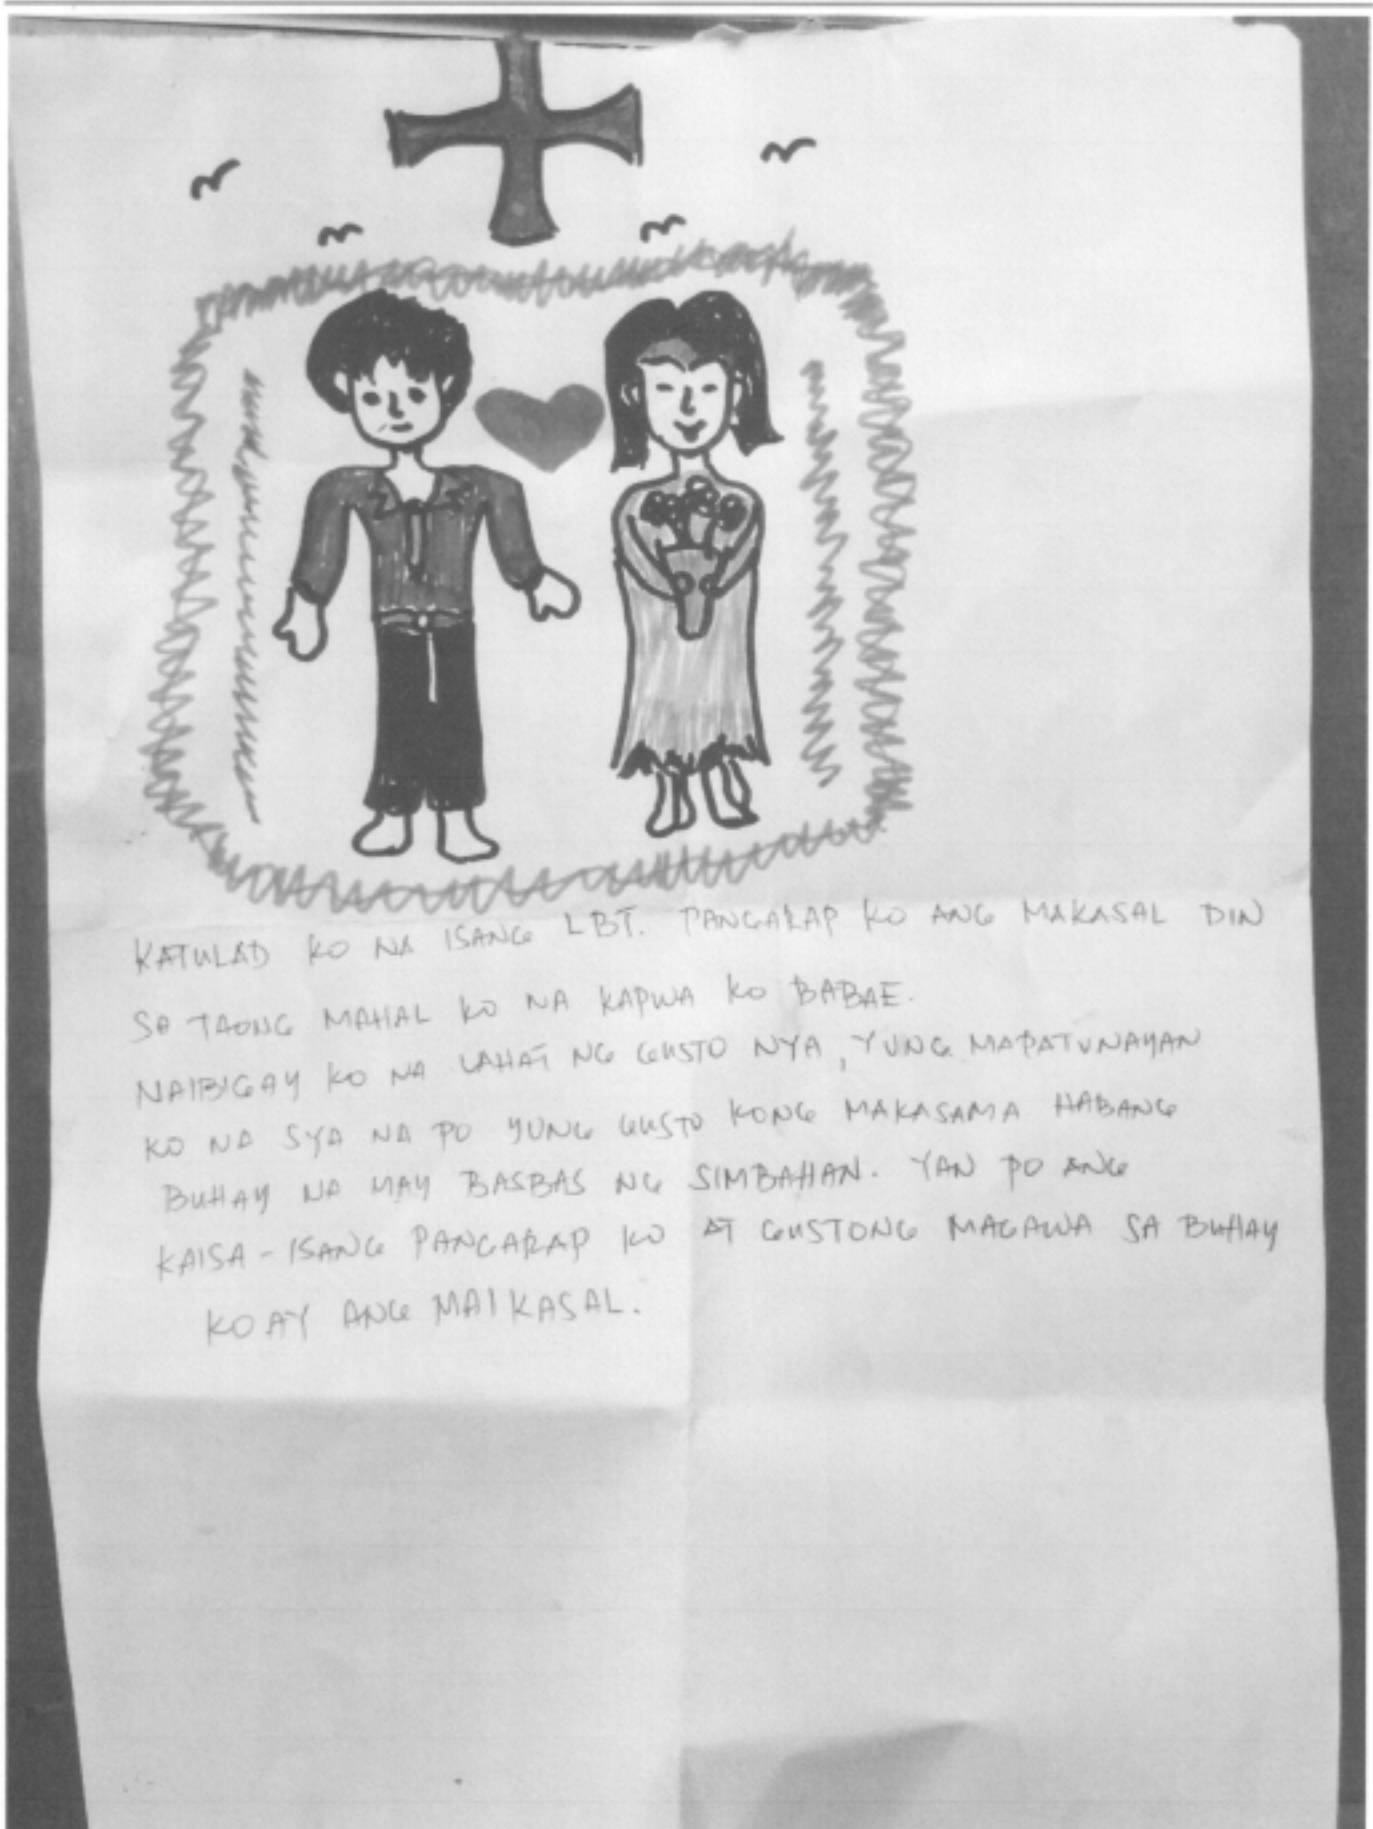 KATULAD KO NA ISANG LBT. PANGARAP KO ANG MAKASAL DIN
SA TAONG MAHAL KO NA KAPWA KO BABAE.
NAIBIGAY KO NA LAHAT NG GUSTO NYA, YUNG MAPATUNAYAN
KO NA SYA NA PO YUNG GUSTO KONG MAKASAMA HABANG
BUHAY NA MAY BASBAS NG SIMBAHAN. YAN PO ANG
KAISA-ISANG PANGARAP KO AT GUSTONG MAGAWA SA BUHAY
KO AY ANG MAIKASAL.